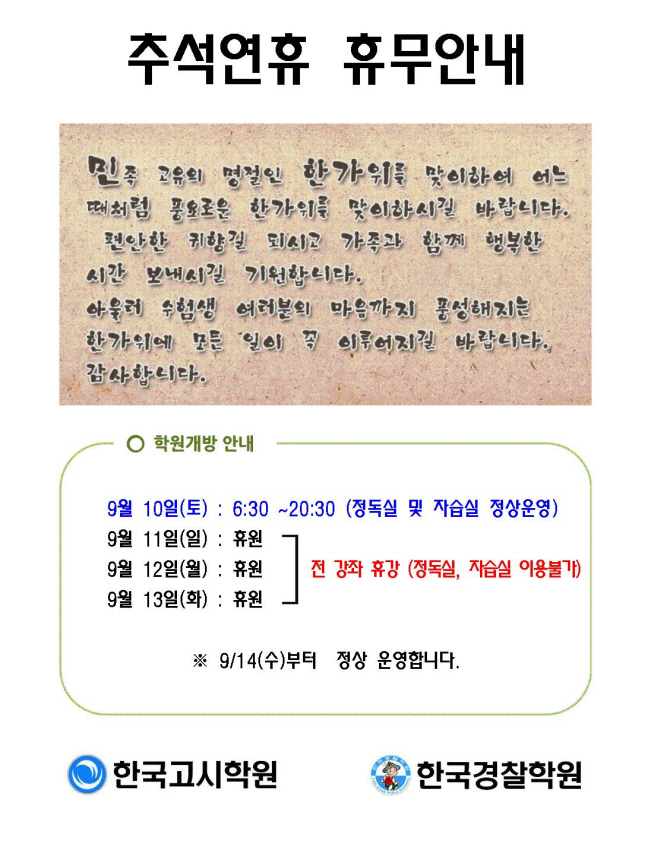 추석연휴 휴무안내
민족 고유의 명절인 한가위를 맞이하여 여느
때처럼 풍요로운 한가위를 맞이하시길 바랍니다.
편안한 귀향길 되시고 가족과 함께 행복한
시간 보내시길 기원합니다.
아울러 수험생 여러분의 마음까지 풍성해지는
한가위에 모든 일이 꼭 이루어지길 바랍니다.
감사합니다.
학원개방 안내
9월 10일(토) : 6:30 ~20:30 (정독실 및 자습실 정상운영)
9월 11일(일) : 휴원
9월 12일(월) : 휴원 전 강좌 휴강 (정독실, 자습실 이용불가)
9월 13일(화) : 휴원
※ 9/14(수)부터 정상 운영합니다.
한국고시학원 한국경찰학원